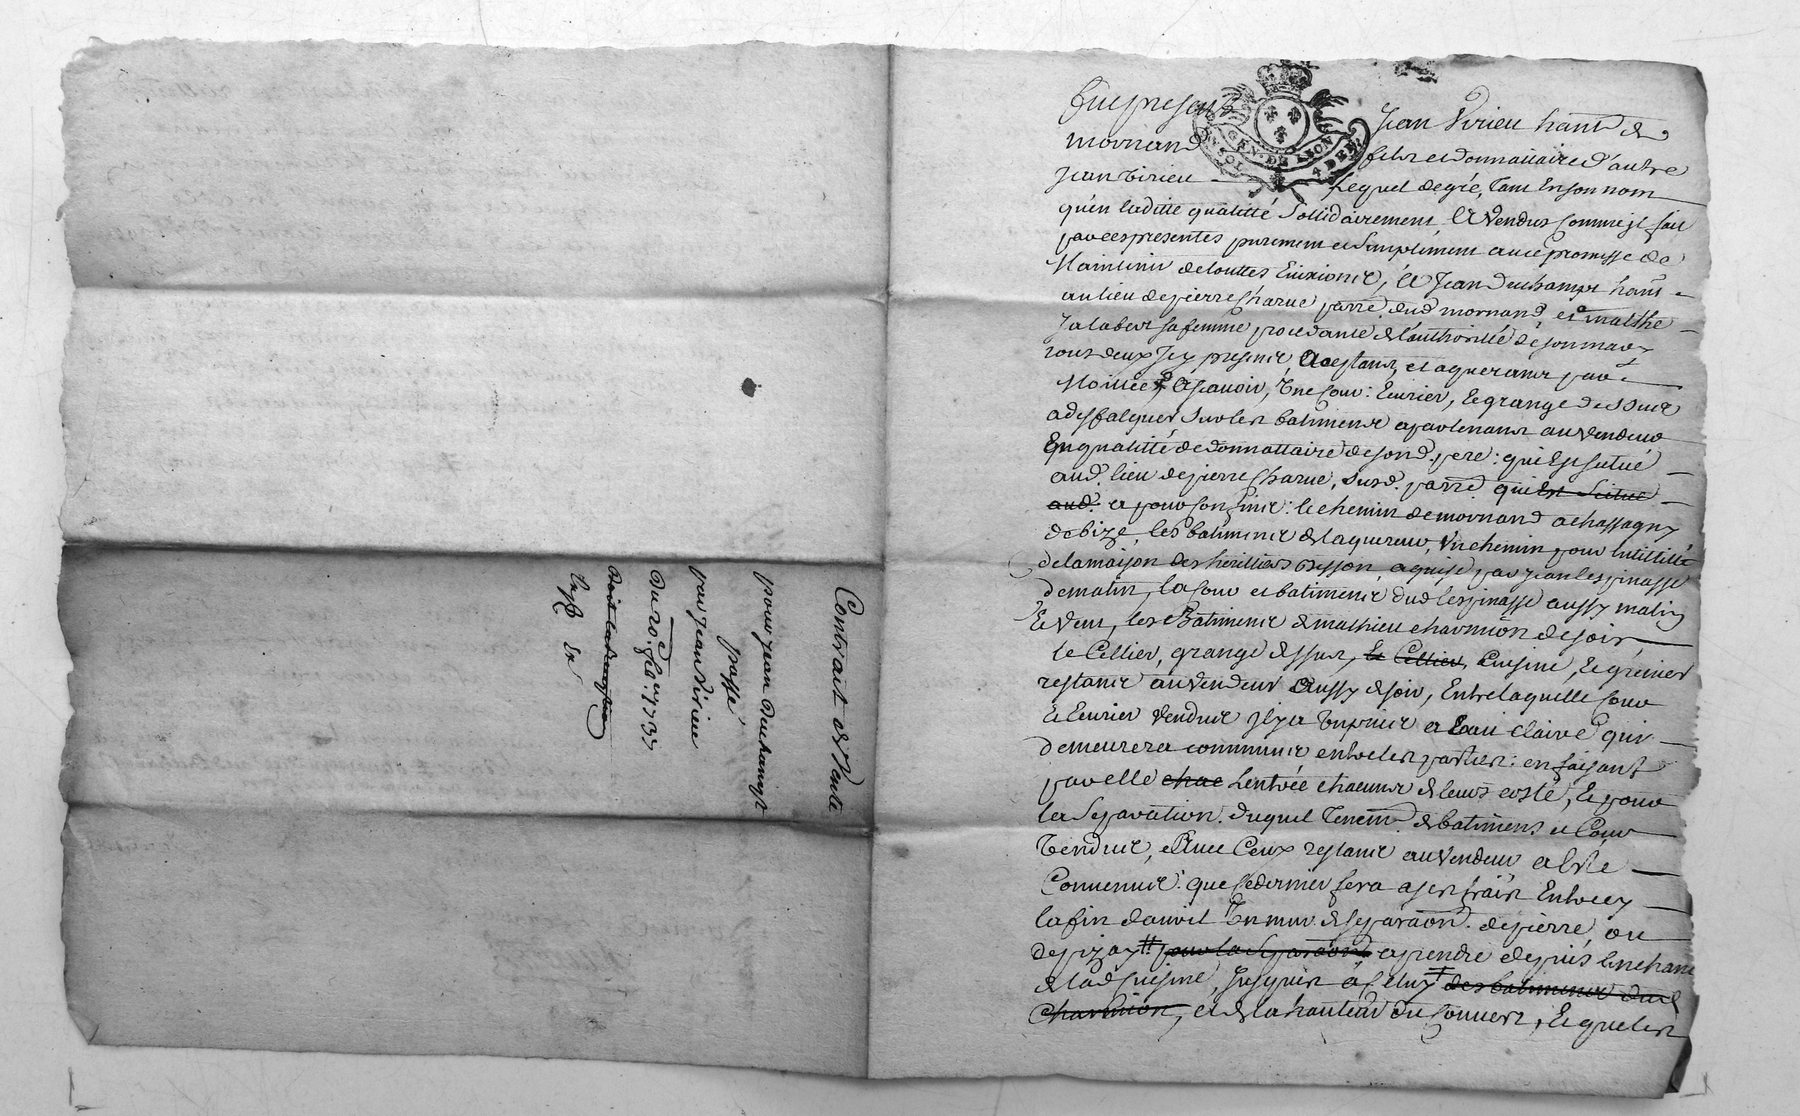 Contrait de Vente
pour jean Duchamp
passé
par jean Virieu
du 20 1737
Fut present Jean Virieu habt de
mornand fils et donnattaire d'autre
Jean Virieu Lequel de gré, tant en son nom
qu'en laditte qualitté sollidairement a vendus comme il fait
par ces presentes purement et simplement avec promesse de
Maintenir de touttes Evixions, a Jean Duchamp habt
au lieu de pierre Charue parr. dud mornand, et matthe
Jalabert sa femme procedante de l'authoritté de son mary
tous deux Icy presents acceptans, et aquerants par
Moitiée Ascavoir, Une Cour: Ecurier, et grange dessus
a desfalquer sur les batiments apartenants au vendeur
En qualitté de donnattaire de sond. pere: qui Est scitué
aud. lieu de pierre Charue, susd. parr. qui Est Scitué
aud. et pour Confins: le chemin de mornand a chassagny
de bize, les batiments de laquereur, Un chemin pour lutillité
de la maison des heritiers Besson, aquise par jean lespinasse
de matin, la Cour et batiments dud lespinasse aussy matin
Et Vent, les Batiments de mathieu charmion de soir
le Cellier, grange dessus, le Cellier, Cuisine, et grenier
restants au vendeur Aussy de soir, Entre laquelle Cour
Et Ecurier vendus il y a Un puit a Eau claire qui
demeurera communs entre les parties: en faisant
par elle chac lentrée chacuns de leurs costé, Et pour
la Separation duquel Tenemt de batiments et Cour
Vendus, et Avec Ceux restants au vendeur a Esté
Convenus: que Ce dernier fera a ses frais Entre cy
la fin d'avril Un mur de separaon. de pierre ou
de pizay pour la Separaon a prendre depuis
de lad Cuisine, Jusques a Celuy des batiments dud
Charmion, et de la hauteur du Couvert, Lequel
GEN. DE LION